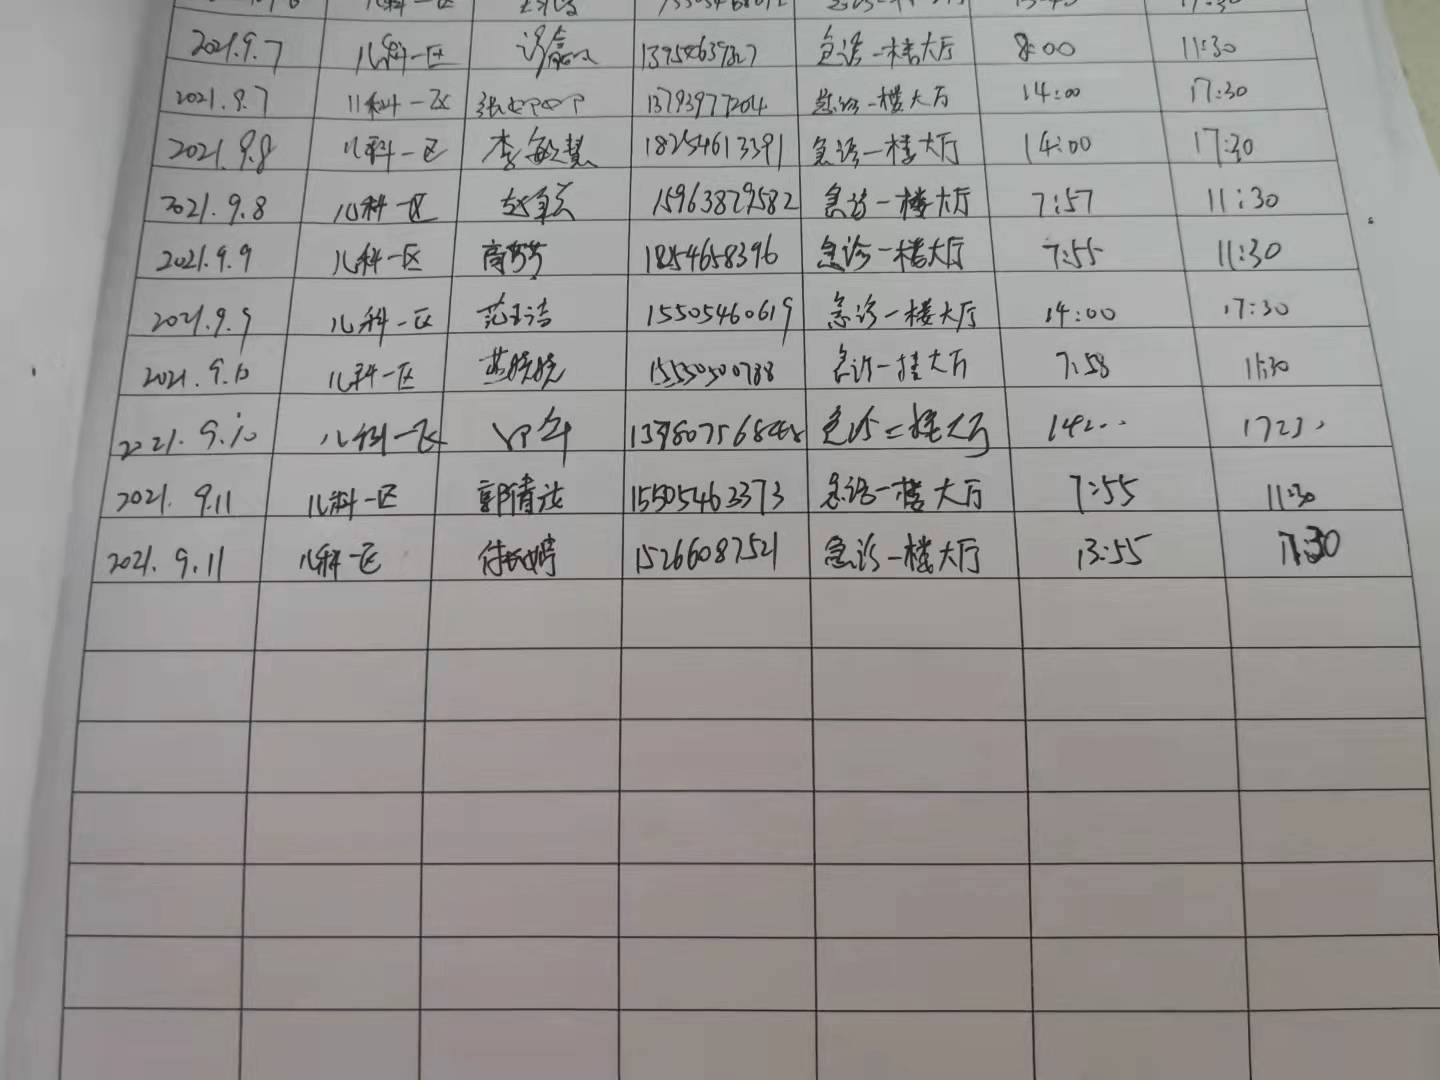 2021.9.7 儿科一区 急诊一楼大厅 8:00 11:30
2021.9.7 儿科一区 13793977204 急诊一楼大厅 14:00 17:30
2021.9.8 儿科一区 李敏慧 18254613391 急诊一楼大厅 14:00 17:30
2021.9.8 儿科一区 15963829582 急诊一楼大厅 7:57 11:30
2021.9.9 儿科一区 高芳芳 1854658396 急诊一楼大厅 7:55 11:30
2021.9.9 儿科一区 范玉洁 15505460619 急诊一楼大厅 14:00 17:30
2021.9.10 儿科一区 燕晓晓 15550500788 急诊一楼大厅 7:58 11:30
2021.9.10 儿科一区
2021.9.11 儿科一区 15505462373 急诊一楼大厅 7:55 11:30
2021.9.11 儿科一区 15266087521 急诊一楼大厅 13:55 17:30